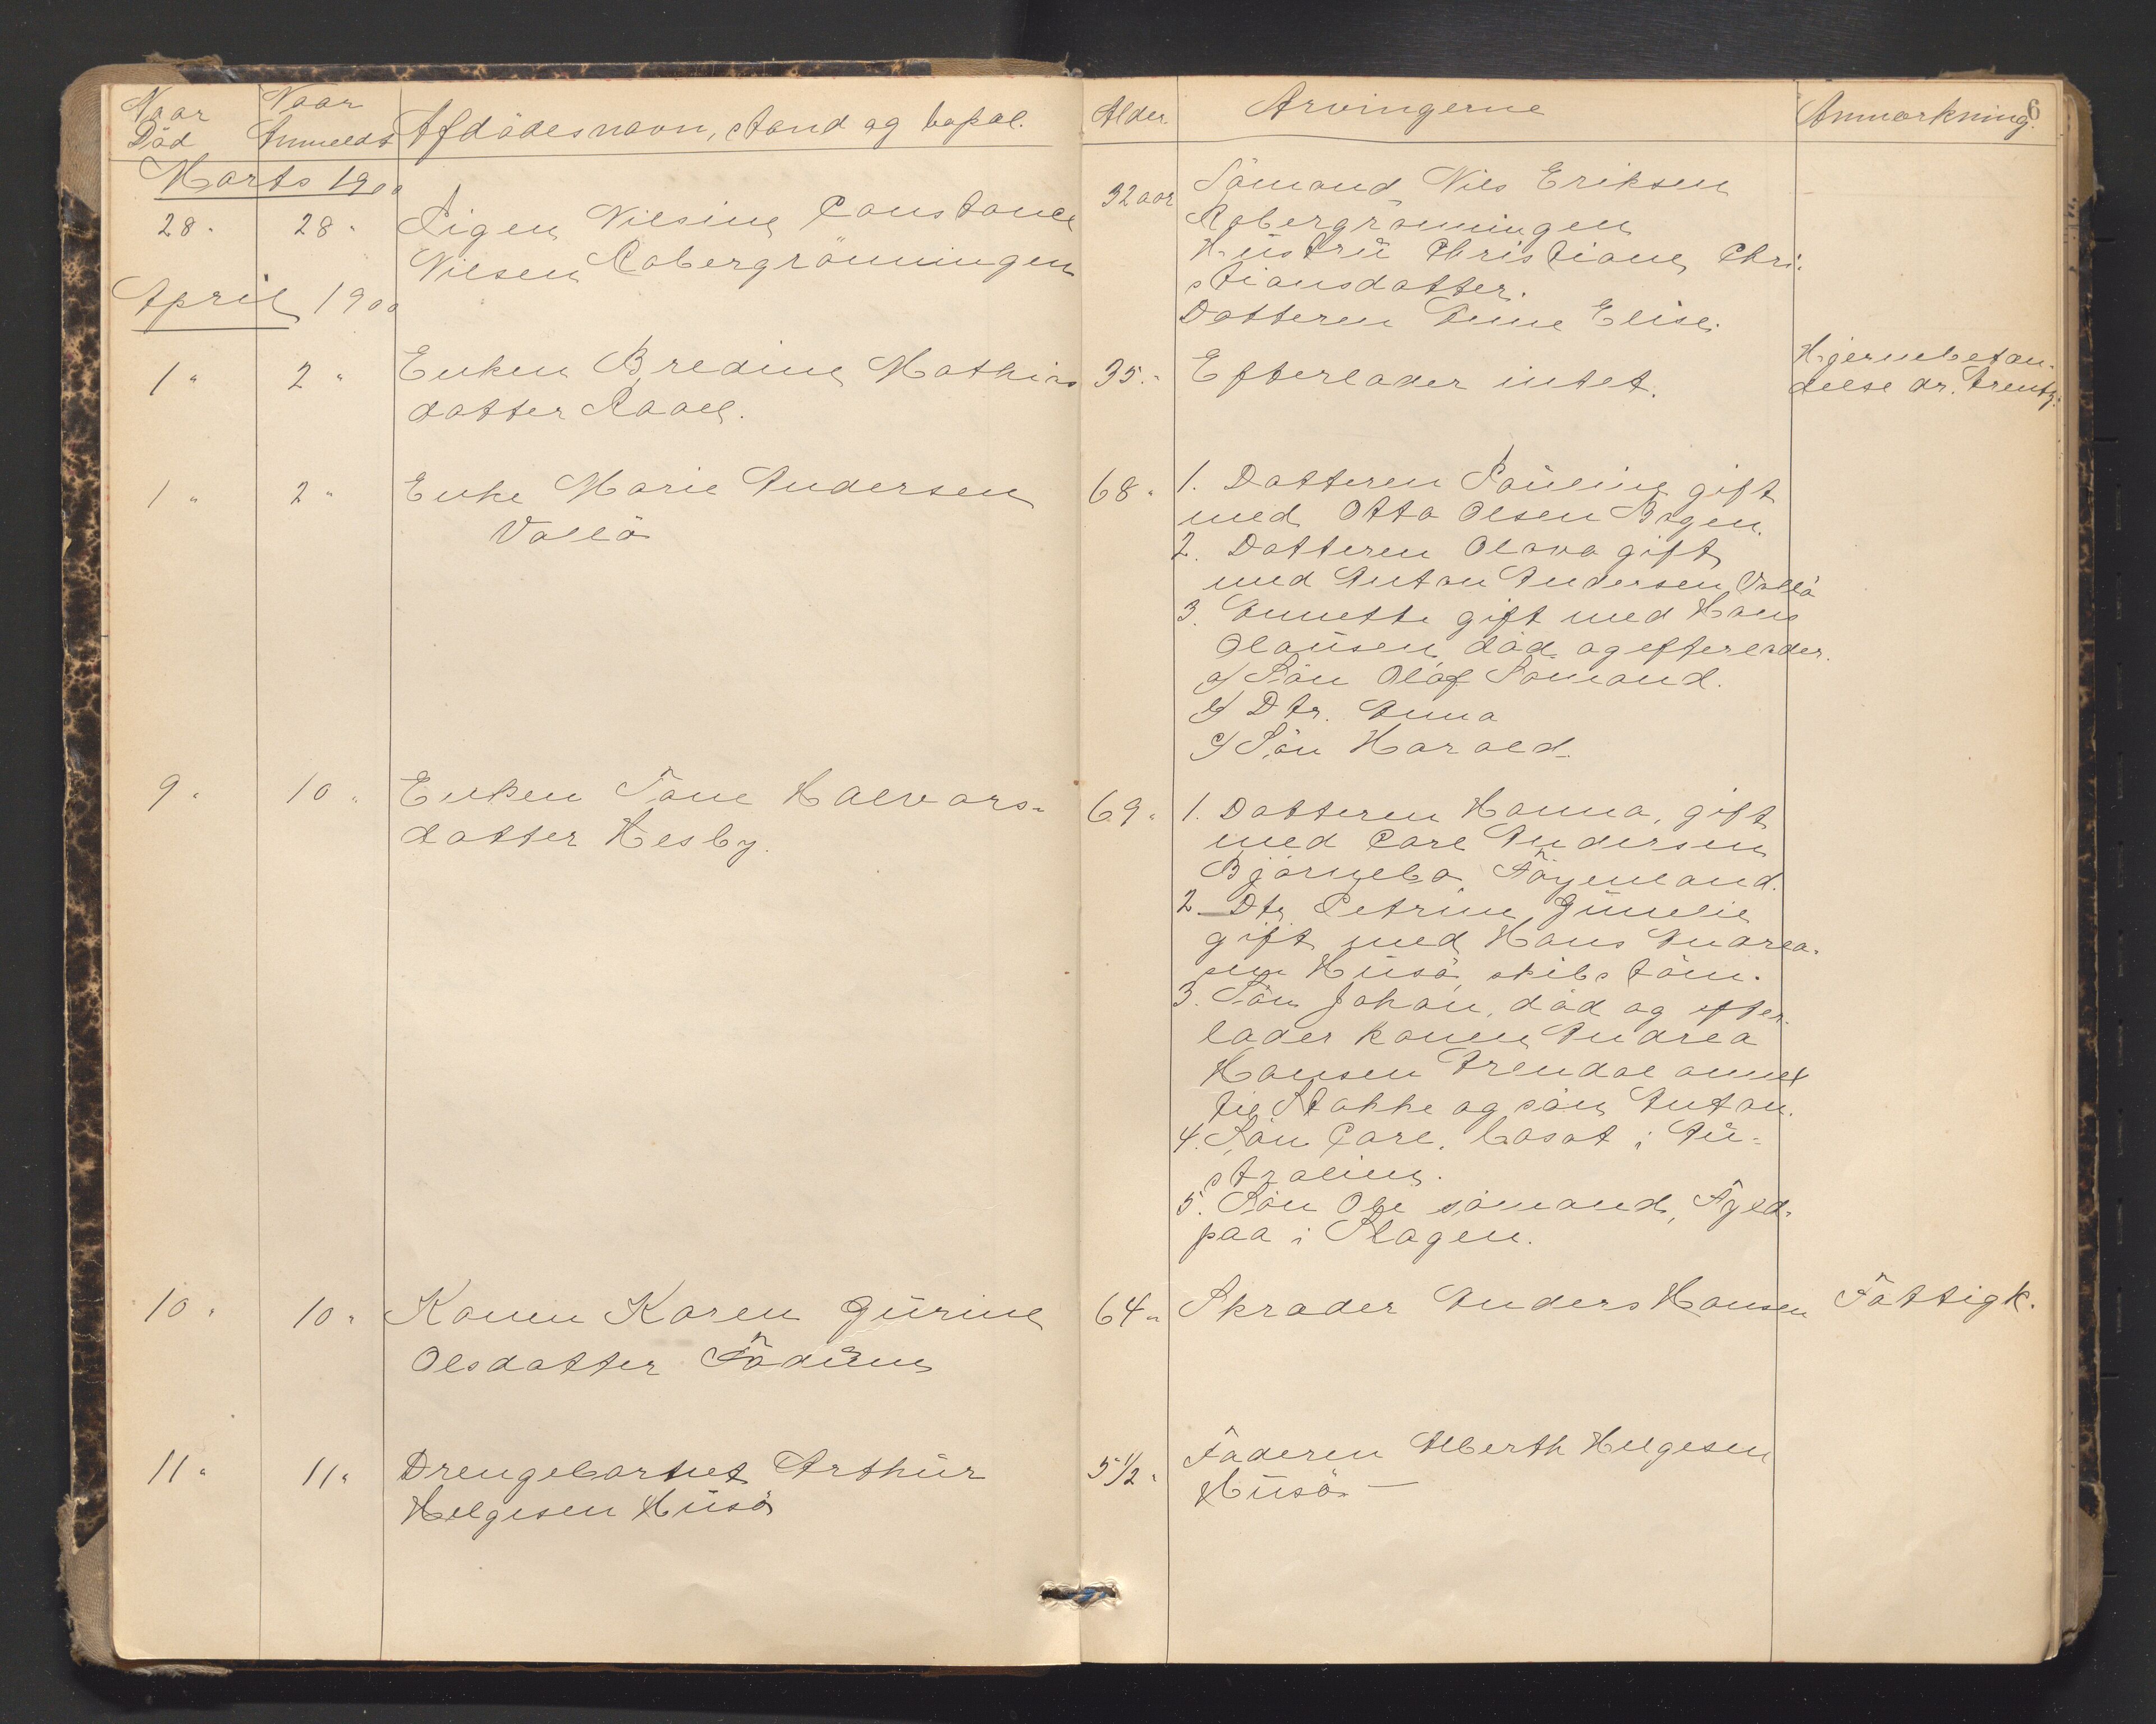 6
Naar Död
Naar Anmeldt
Afdödes navn, stand og bopæl.
Alder
Arvingerne
Anmærkning.
Marts 1900
28 " 28 " Pigen Nilsine Constance
Nilsen Robergrönningen
32 aar
Sömand Nils Eriksen
Robergrönningen
Hustru Christiane Chri-
stiansdatter.
Datteren Anne Elise.
April 1900
1 " 2 " Enken Bredine Mathias
datter Rael.
35 "
Efterlader intet.
Hjernebetæn-
delse dr. Arentz.
1 " 2 " Enke Marie Andersen
Vallö
68 "
1. Datteren Pauline gift
med Otto Olsen Bogen.
2. Datteren Olava gift
med Anton Andersen Vallö
3. Annette gift med Hans
Olausen död og efterlader.
a/ Sön Olaf Sömand.
b/ Dtr. Anna
c/ Sön Harald.
9 " 10 " Enken Tone Halvors-
datter Hesby.
69 "
1. Datteren Hanna, gift
med Carl Andersen
Björnebo, Föyenland.
2. Dtr. Petrine Gunelie
gift med Hans Andrea-
sen Husö, skibstöm.
3. Sön Johan, död og efter-
lader konen Andrea
Hansen Arendal anmet
til Stokke og sön Anton.
4. Sön Carl, bosat i Au-
stralien.
5. Sön Ole sömand, Fyld-
paa i Slagen.
10 " 10 " Konen Karen Gurine
Olsdatter Föduen
64 "
Skræder Anders Hansen
Fattigk.
11 " 11 " Drengebarnet Arthur
Helgesen Husö
5 1/2 "
Faderen Alberth Helgesen
Husö —